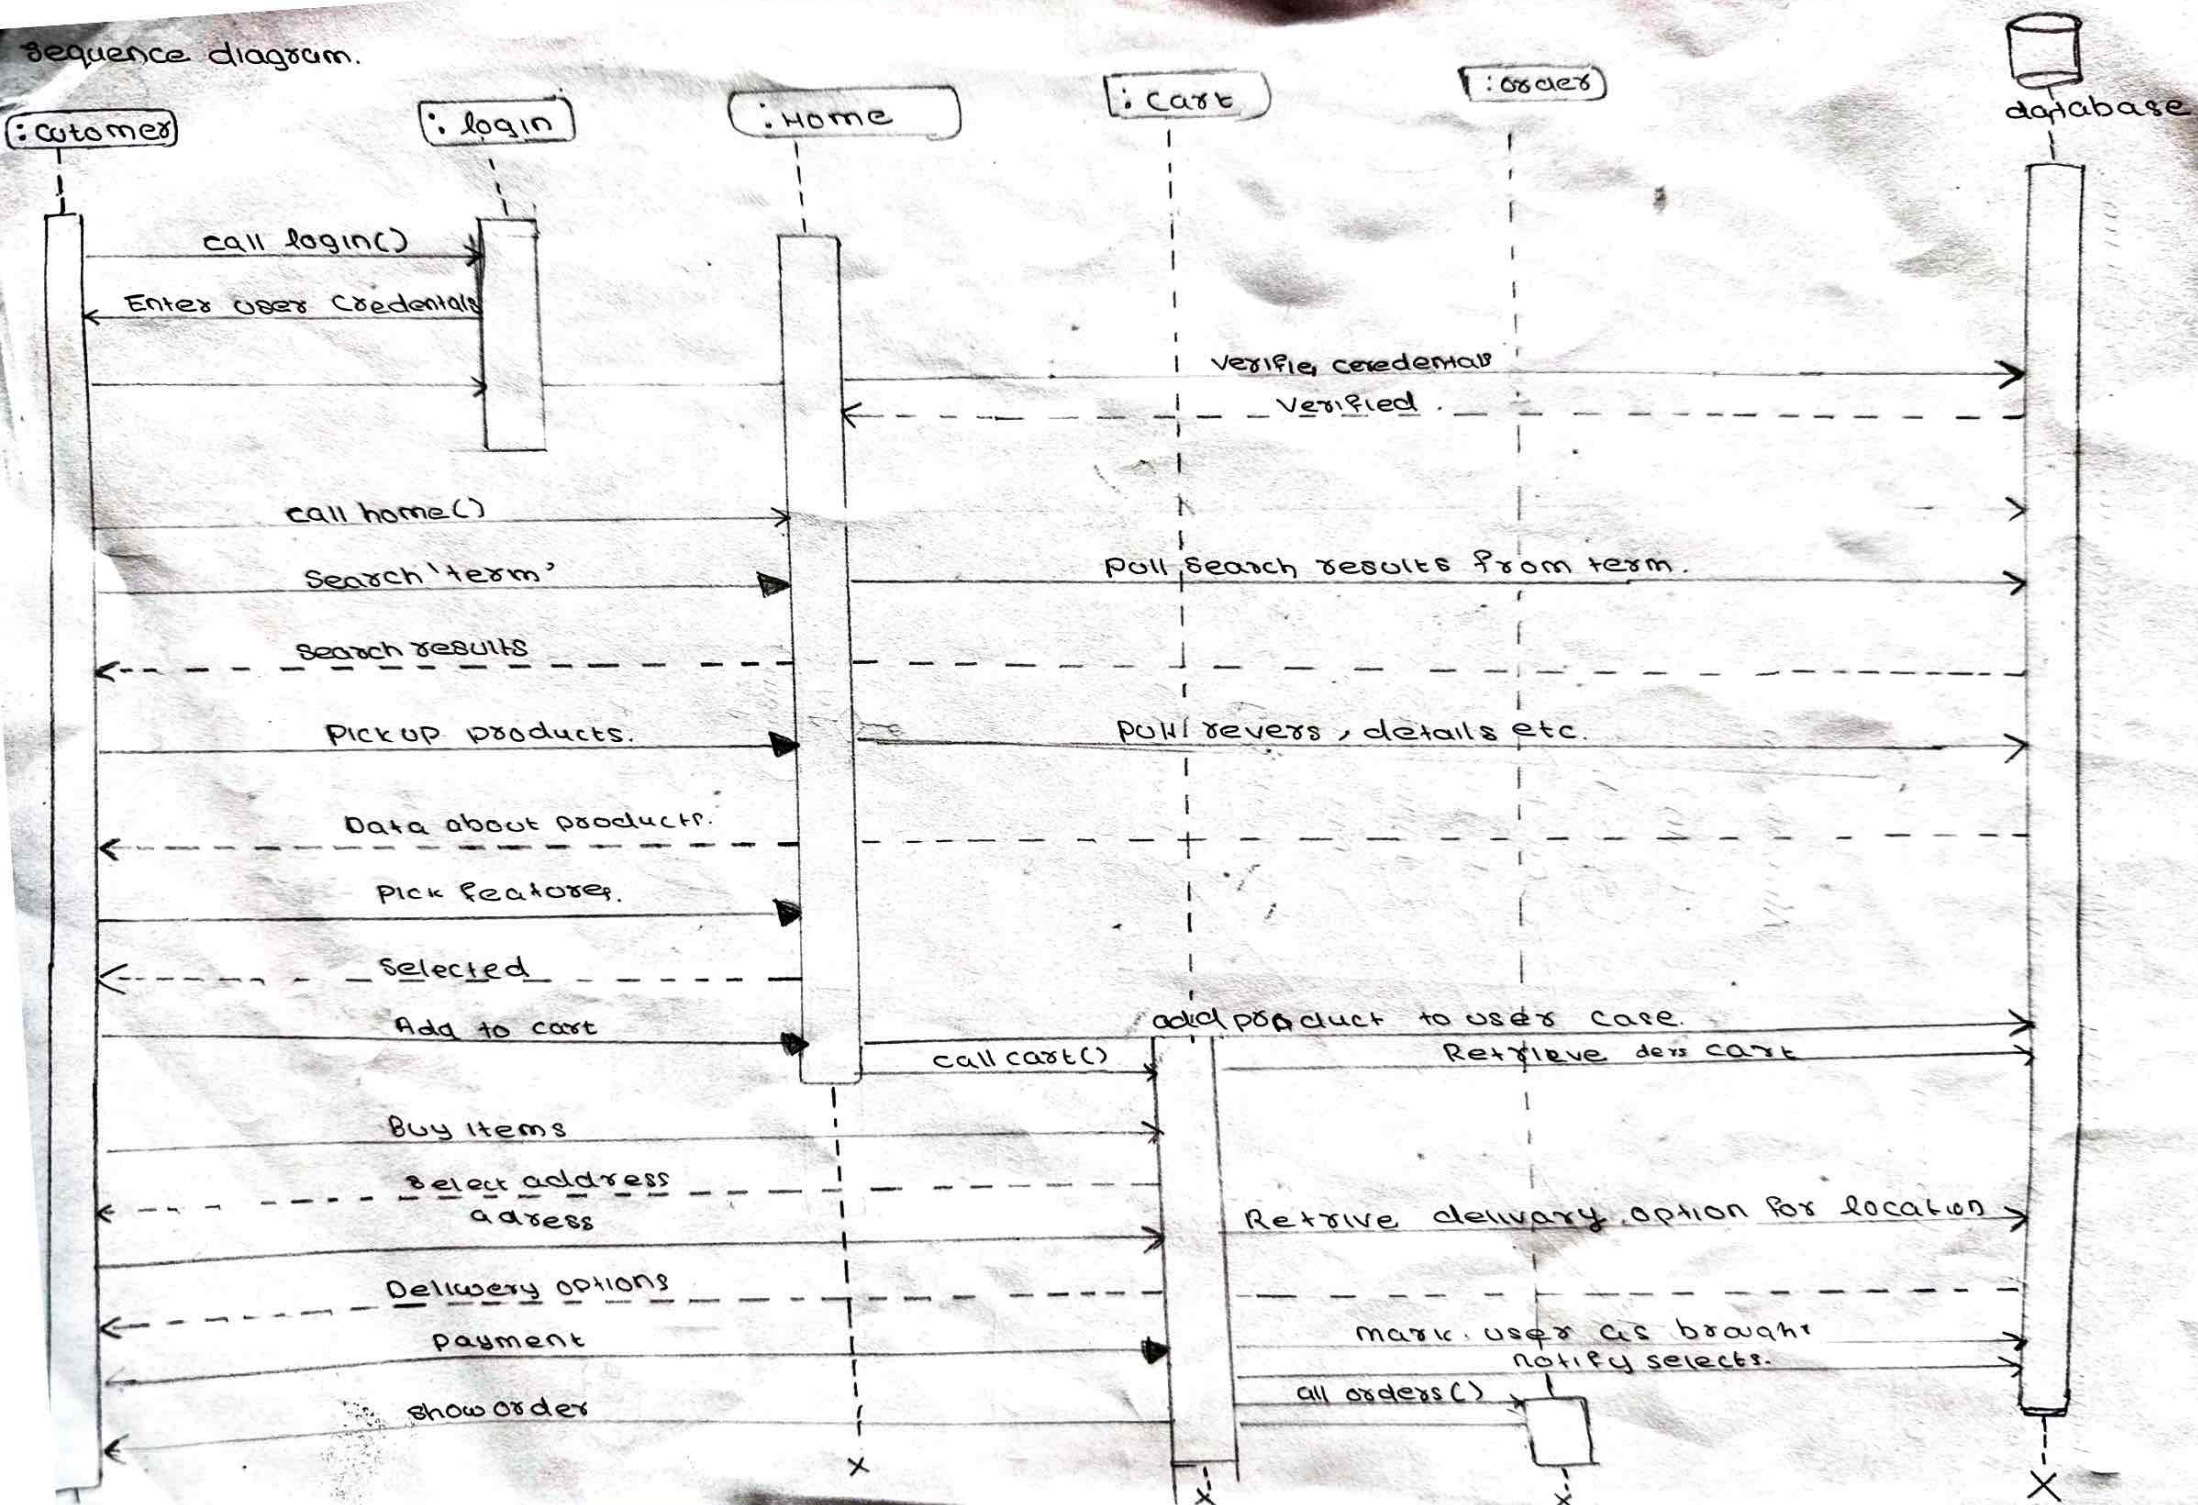 Sequence diagram.
:Cutomer
: login
: Home
: Cart
:order
database
call login()
Enter user Credentals
Verifie ceredentals
Verified.
call home()
Search 'term'
Pull search results from term.
Search results
Pick up products.
Pull revers, details etc.
Data about products.
Pick features.
Selected
Add to cart
add product to user case.
call cart()
Retrieve ders cart
Buy items
Select address
adress
Retrive delivary option for location
Delivery options
Payment
mark user as brought
notify selects.
all orders()
show order